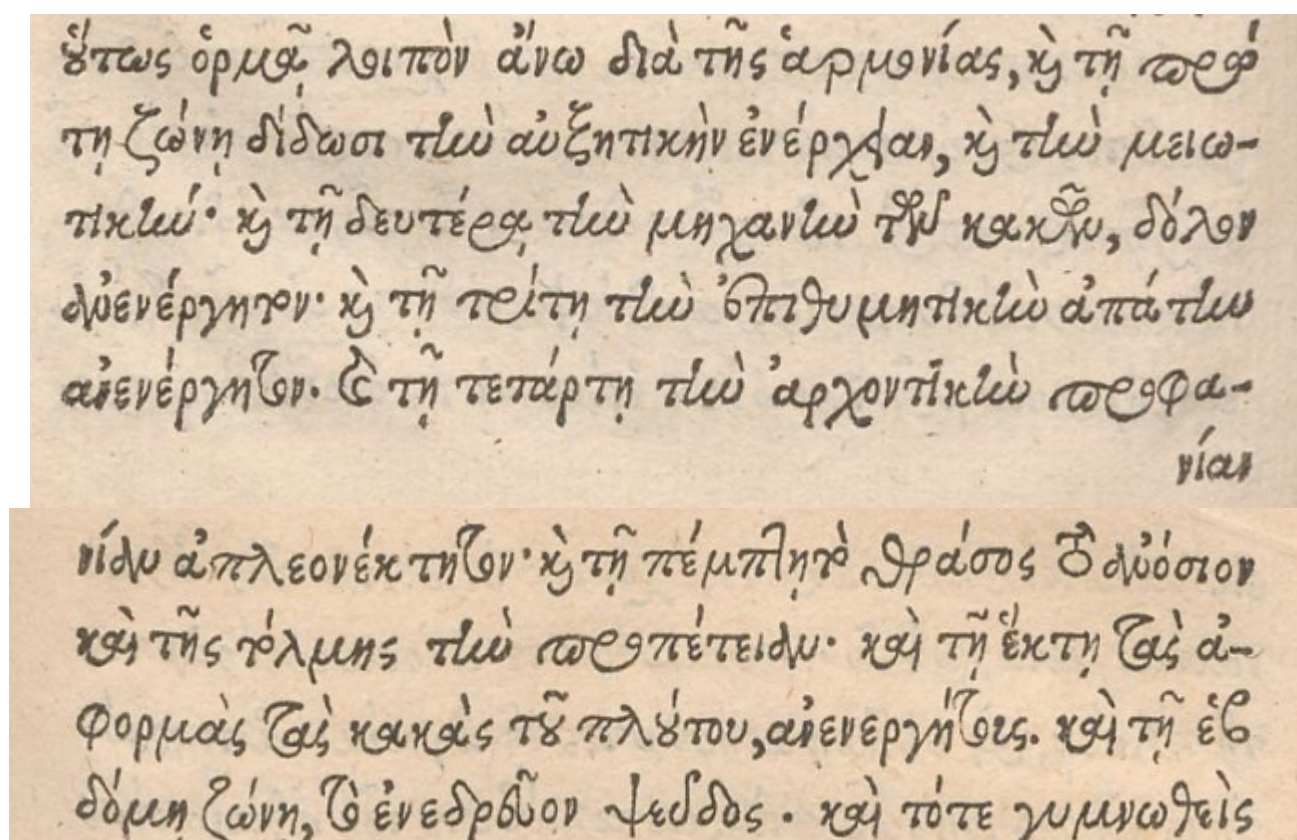 οὕτως ὁρμᾷ λοιπὸν ἄνω διὰ τῆς ἁρμονίας, καὶ τῇ πρώ
τῃ ζώνῃ δίδωσι τὴν αὐξητικὴν ἐνέργειαν, καὶ τὴν μειω-
τικήν· καὶ τῇ δευτέρᾳ τὴν μηχανὴν τῶν κακῶν, δόλον
ἀνενέργητον· καὶ τῇ τρίτῃ τὴν ἐπιθυμητικὴν ἀπάτην
ἀνενέργητον. καὶ τῇ τετάρτῃ τὴν ἀρχοντικὴν προφα-
νίαν
νίαν ἀπλεονέκτητον· καὶ τῇ πέμπτῃ τὸ θράσος τὸ ἀνόσιον
καὶ τῆς τόλμης τὴν προπέτειαν· καὶ τῇ ἕκτῃ τὰς ἀ-
φορμὰς τὰς κακὰς τοῦ πλούτου, ἀνενεργήτους. καὶ τῇ ἑβ
δόμῃ ζώνῃ, τὸ ἐνεδρεῦον ψεῦδος. καὶ τότε γυμνωθεὶς